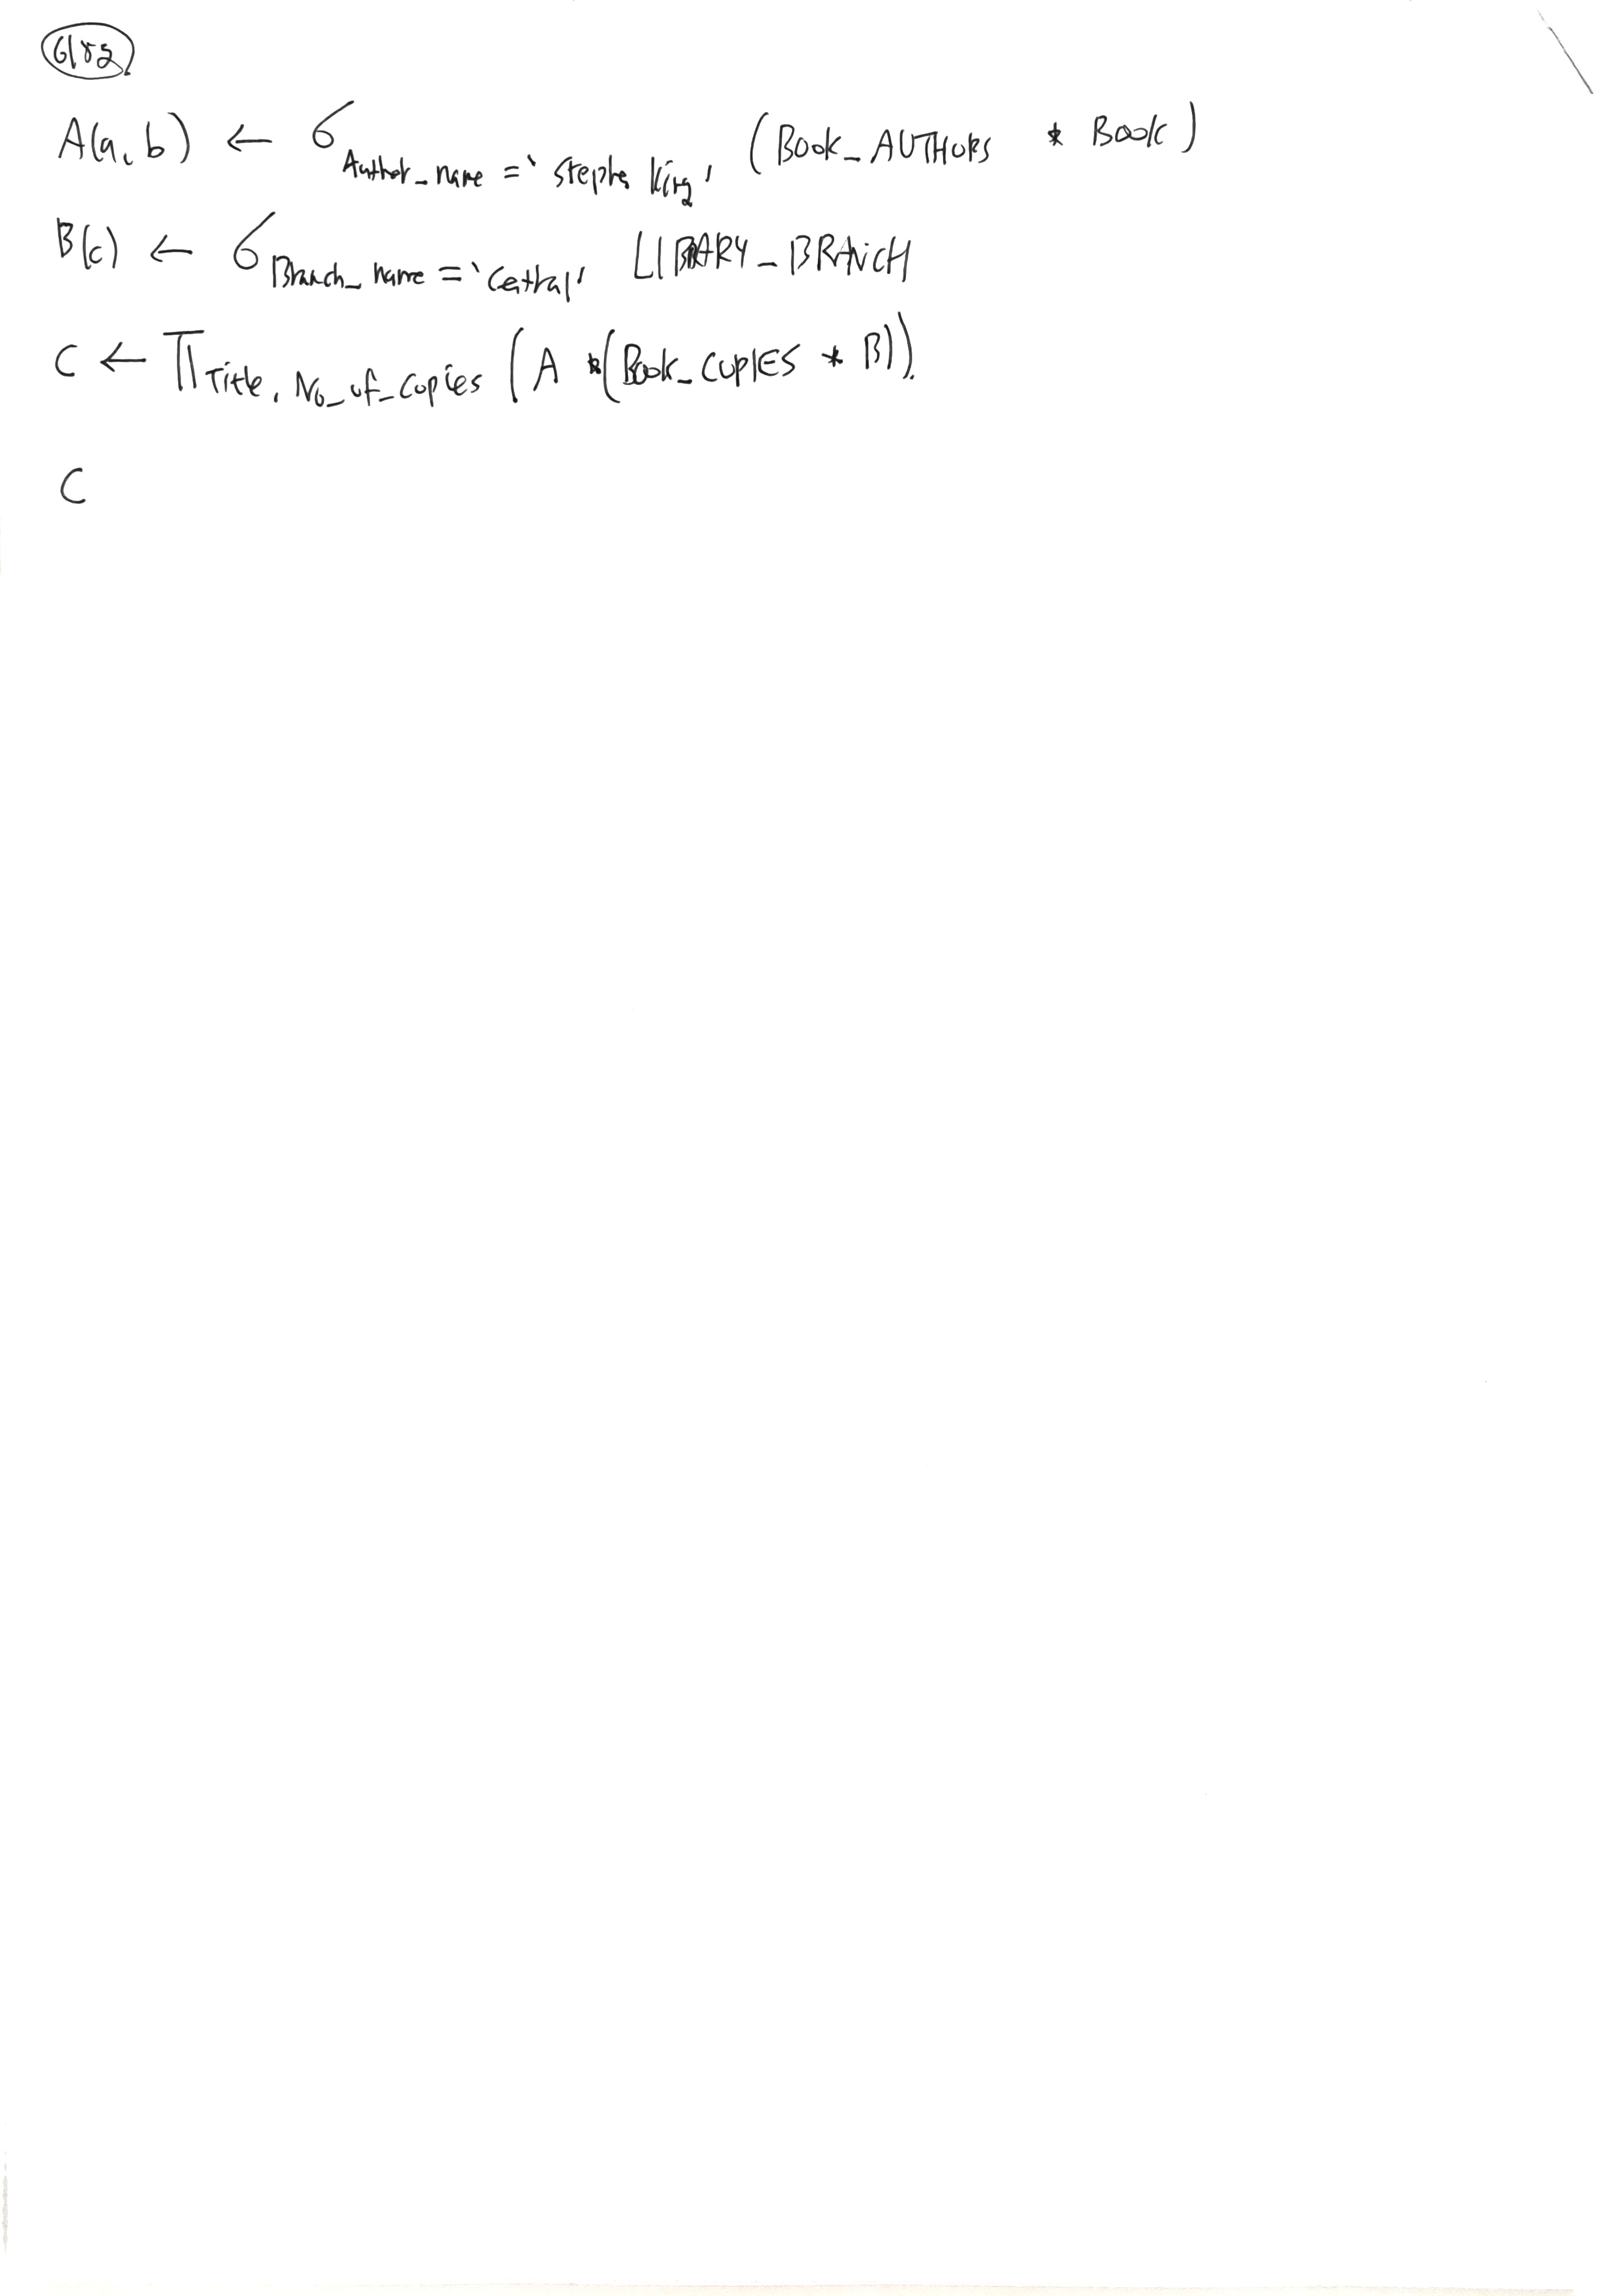 6.18g
A(a,b) ← σ Author_name = 'Stephe King' (Book_AUTHORS * Book)
B(c) ← σ Branch_name = 'Central' LIBRARY_BRANCH
C ← Π Title, No_of_copies (A * (Book_COPIES * B)).
C